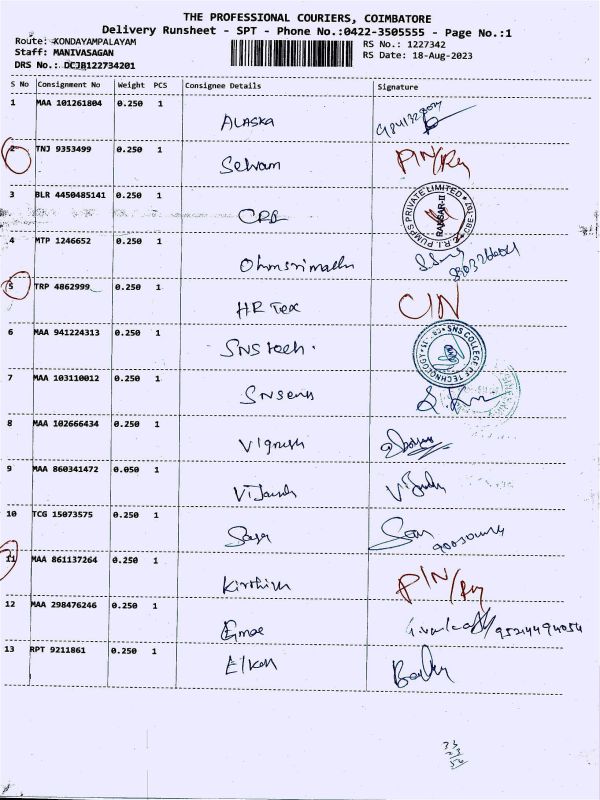 THE PROFESSIONAL COURIERS, COIMBATORE
Delivery Runsheet - SPT - Phone No.:0422-3505555 - Page No.:1
Route: KONDAYAMPALAYAM
RS No.: 1227342
Staff: MANIVASAGAN
RS Date: 18-Aug-2023
DRS No.: DCJB122734201
S No Consignment No Weight PCS Consignee Details Signature
1 MAA 101261804 0.250 1
ALASKA
2 TNJ 9353499 0.250 1
Selvam PIN/Ry
3 BLR 4450485141 0.250 1
C.R.I. PUMPS PRIVATE LIMITED
RANGAR-II
4 MTP 1246652 0.250 1
5 TRP 4862999 0.250 1
HR Tex CIN
6 MAA 941224313 0.250 1
SNS tech. SNS COLLEGE OF TECHNOLOGY
7 MAA 103110012 0.250 1
8 MAA 102666434 0.250 1
Vignesh
9 MAA 860341472 0.050 1
10 TCG 15073575 0.250 1
11 MAA 861137264 0.250 1
PIN/Ry
12 MAA 298476246 0.250 1
9524494054
13 RPT 9211861 0.250 1
33